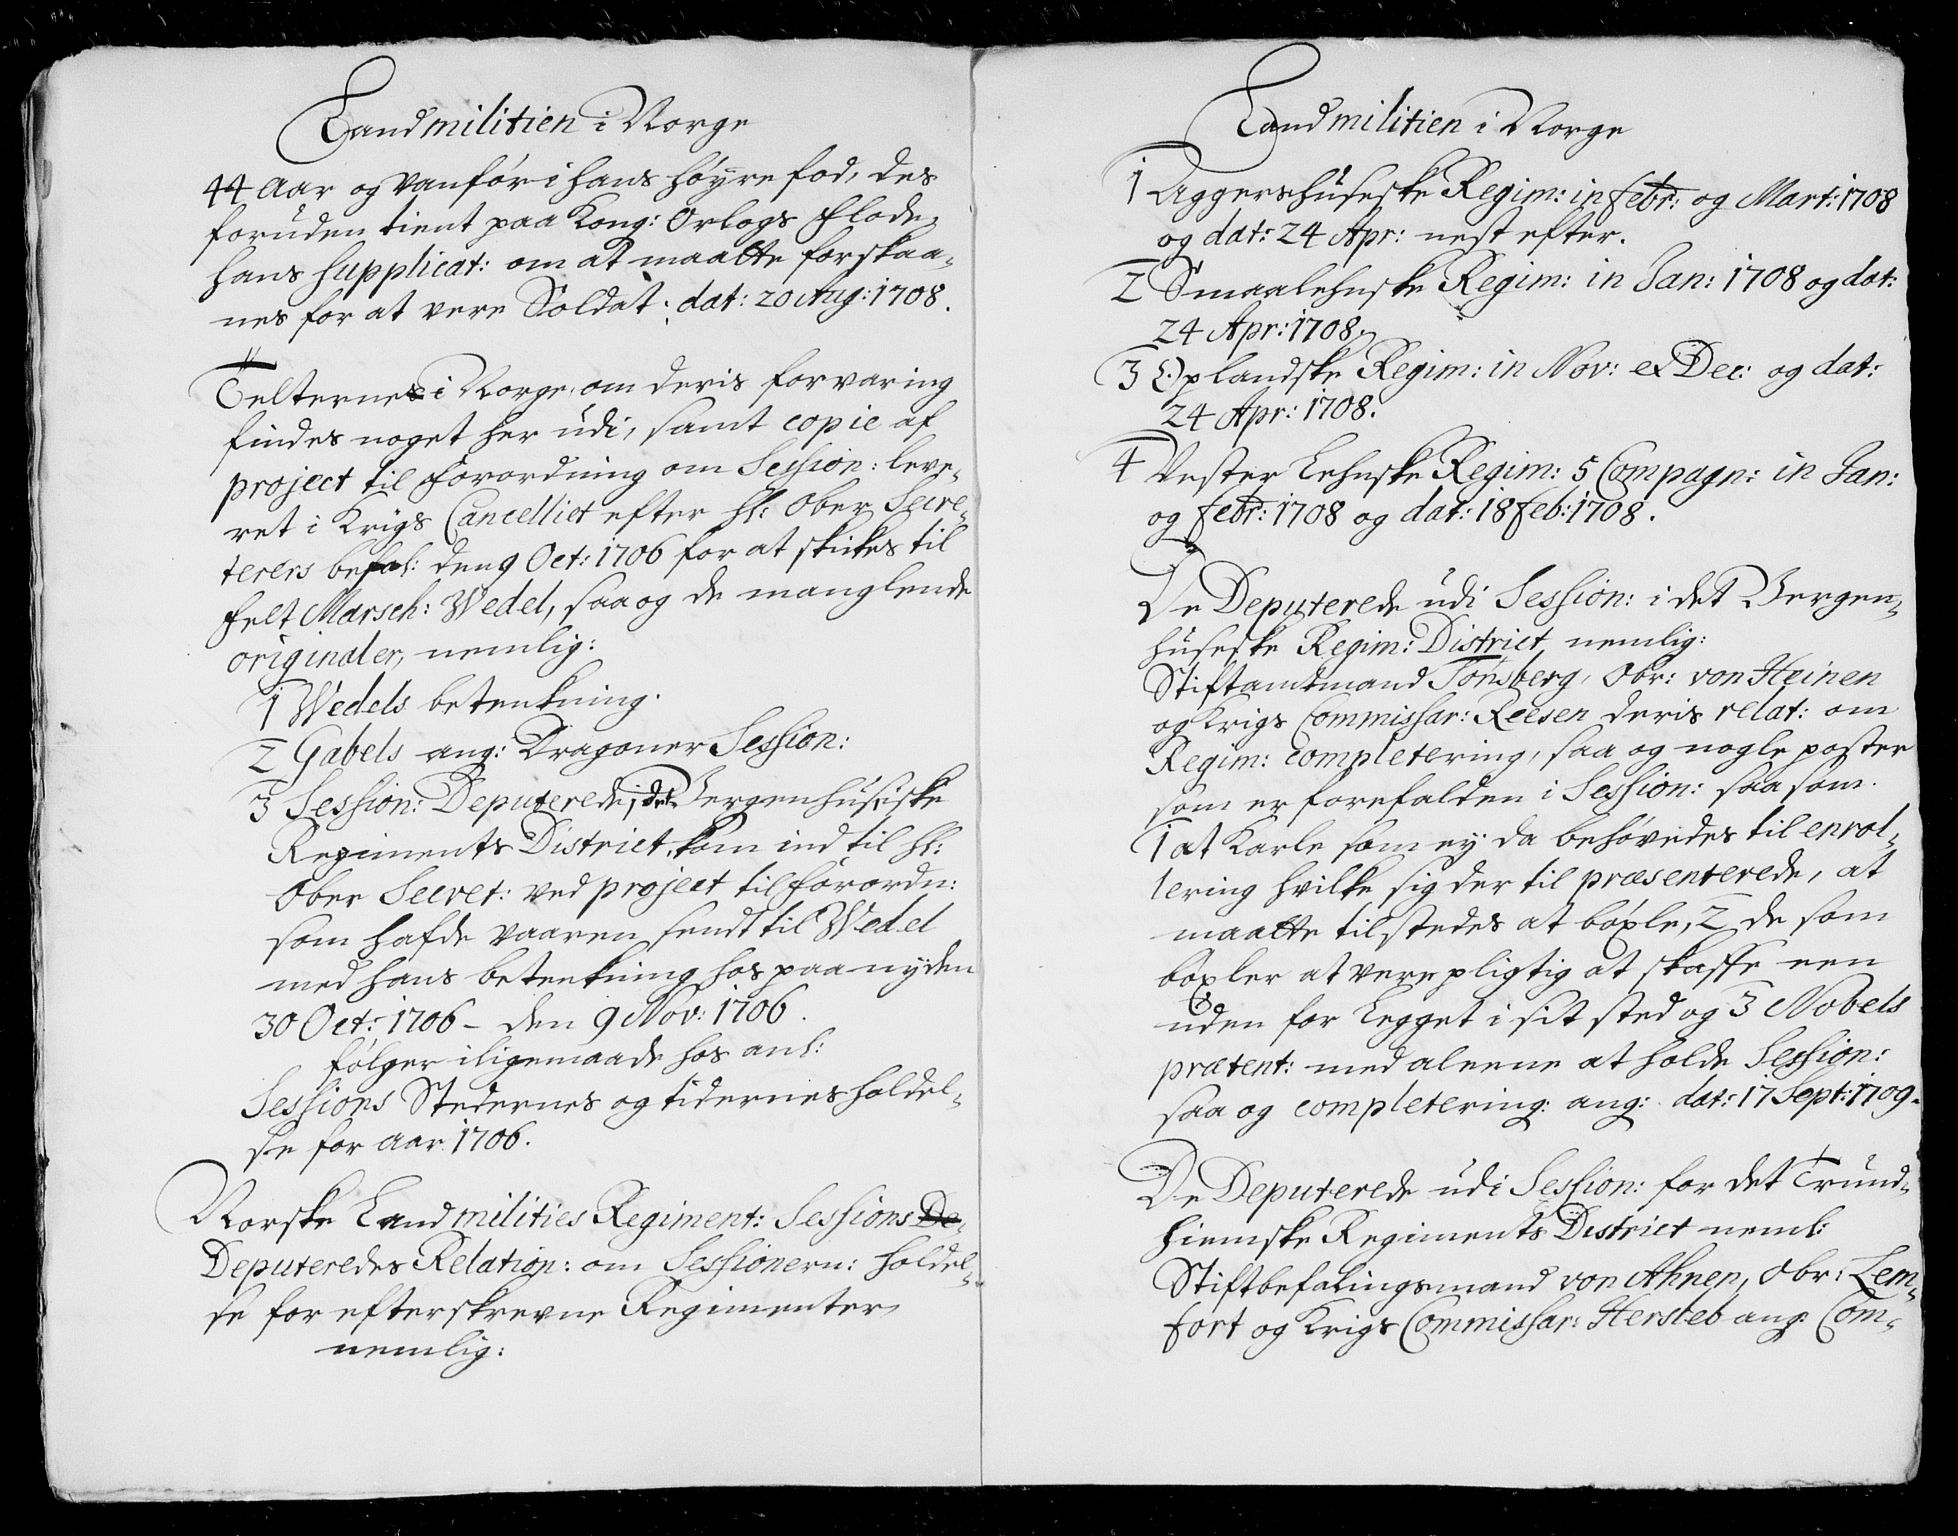 Landmilitien i Norge
44 Aar og vanför i hans höyre fod, des
foruden tient paa Kong: Orlogs Flode,
hans Supplicat: om at maatte forskaa-
nes for at vere Soldat; dat: 20 Aug: 1708.
Telternes i Norge, om deris forvaring
findes noget her udi, samt copie af
project til Forordning om Session: leve-
ret i Krigs Cancelliet efter Hl: Ober Secre-
terers befal: den 9 Oct: 1706 for at skikes til
Felt Marsch: Wedel, saa og de manglende
originaler, nemlig:
1 Wedels betenkning.
2 Gabels ang: Dragoner Session:
3 Session: Deputerede i det Bergenhusiske
Regiments District, kom ind til Hl:
Ober Secret: ved project til Forordn:
som hafde vaaren sendt til Wedel
med hans betenkning hos paa nyden
30 Oct: 1706 - den 9 Nov: 1706.
fölger iligemaade hos anl:
Sessions Stedernes og tidernes holdel-
se for Aar 1706.
Norske Landmilities Regiment: Sessions De-
Deputeredes Relation: om Sessionern: holdel-
se for efterskrevne Regimenter
nemlig:
Landmilitien i Norge
1 Aggershuseske Regim: in Febr: og Mart: 1708
og dat: 24 Apr: nest efter.
2 Smaalehnske Regim: in Jan: 1708 og dat:
24 Apr: 1708.
3 Oplandske Regim: in Nov: et Dec: og dat:
24 Apr: 1708.
4 Vester Lehnske Regim: 5 Compagn: in Jan:
og Febr: 1708 og dat: 18 Feb: 1708.
De Deputerede udi Session: i det Bergen-
huseske Regim: District, nemlig:
Stiftamtmand Tonsberg, Obr: von Heinen
og Krigs Commissar: Reesen deris relat: om
Regim: completering, saa og nogle poster
som er forefalden i Session: saa som.
1 at Karle som ey da behövedes til enrol-
lering hvilke sig der til præsenterede, at
maatte tilstedes at böxle, 2 de som
böxler at vere pligtig at skaffe een
uden for Legget i sit sted og 3 Nobels
prætent: med aleene at holde Session:
saa og completering: ang: dat: 17 Sept: 1709.
De Deputerede udi Session: for det Trund-
hiemske Regiments District neml:
Stiftbefalingsmand von Ahnen, Obr: Lem-
fort og Krigs Commissar: Hersleb ang: Com-